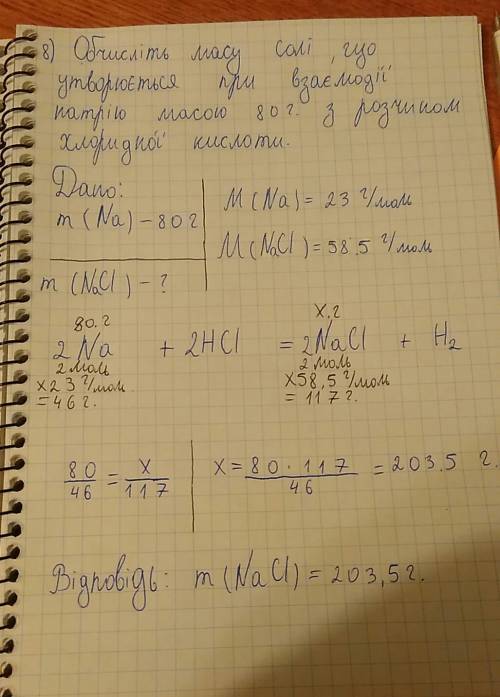 8) Обчисліть масу солі, що
утворюється при взаємодії
натрію масою 80 г. з розчином
хлоридної кислоти.
Дано:
m (Na) – 80 г
m (NaCl) – ?
M (Na) = 23 г/моль
M (NaCl) = 58.5 г/моль
80.г x.г
2Na + 2HCl = 2NaCl + H₂
2 моль 2 моль
x23 г/моль x58,5 г/моль
= 46 г. = 117 г.
80/46 = x/117 x = 80 · 117/46 = 203.5 г.
Відповідь: m (NaCl) = 203,5 г.